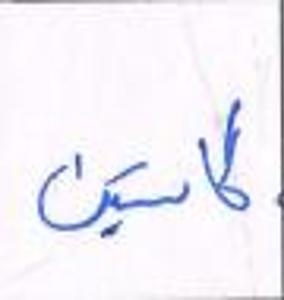 کا سین